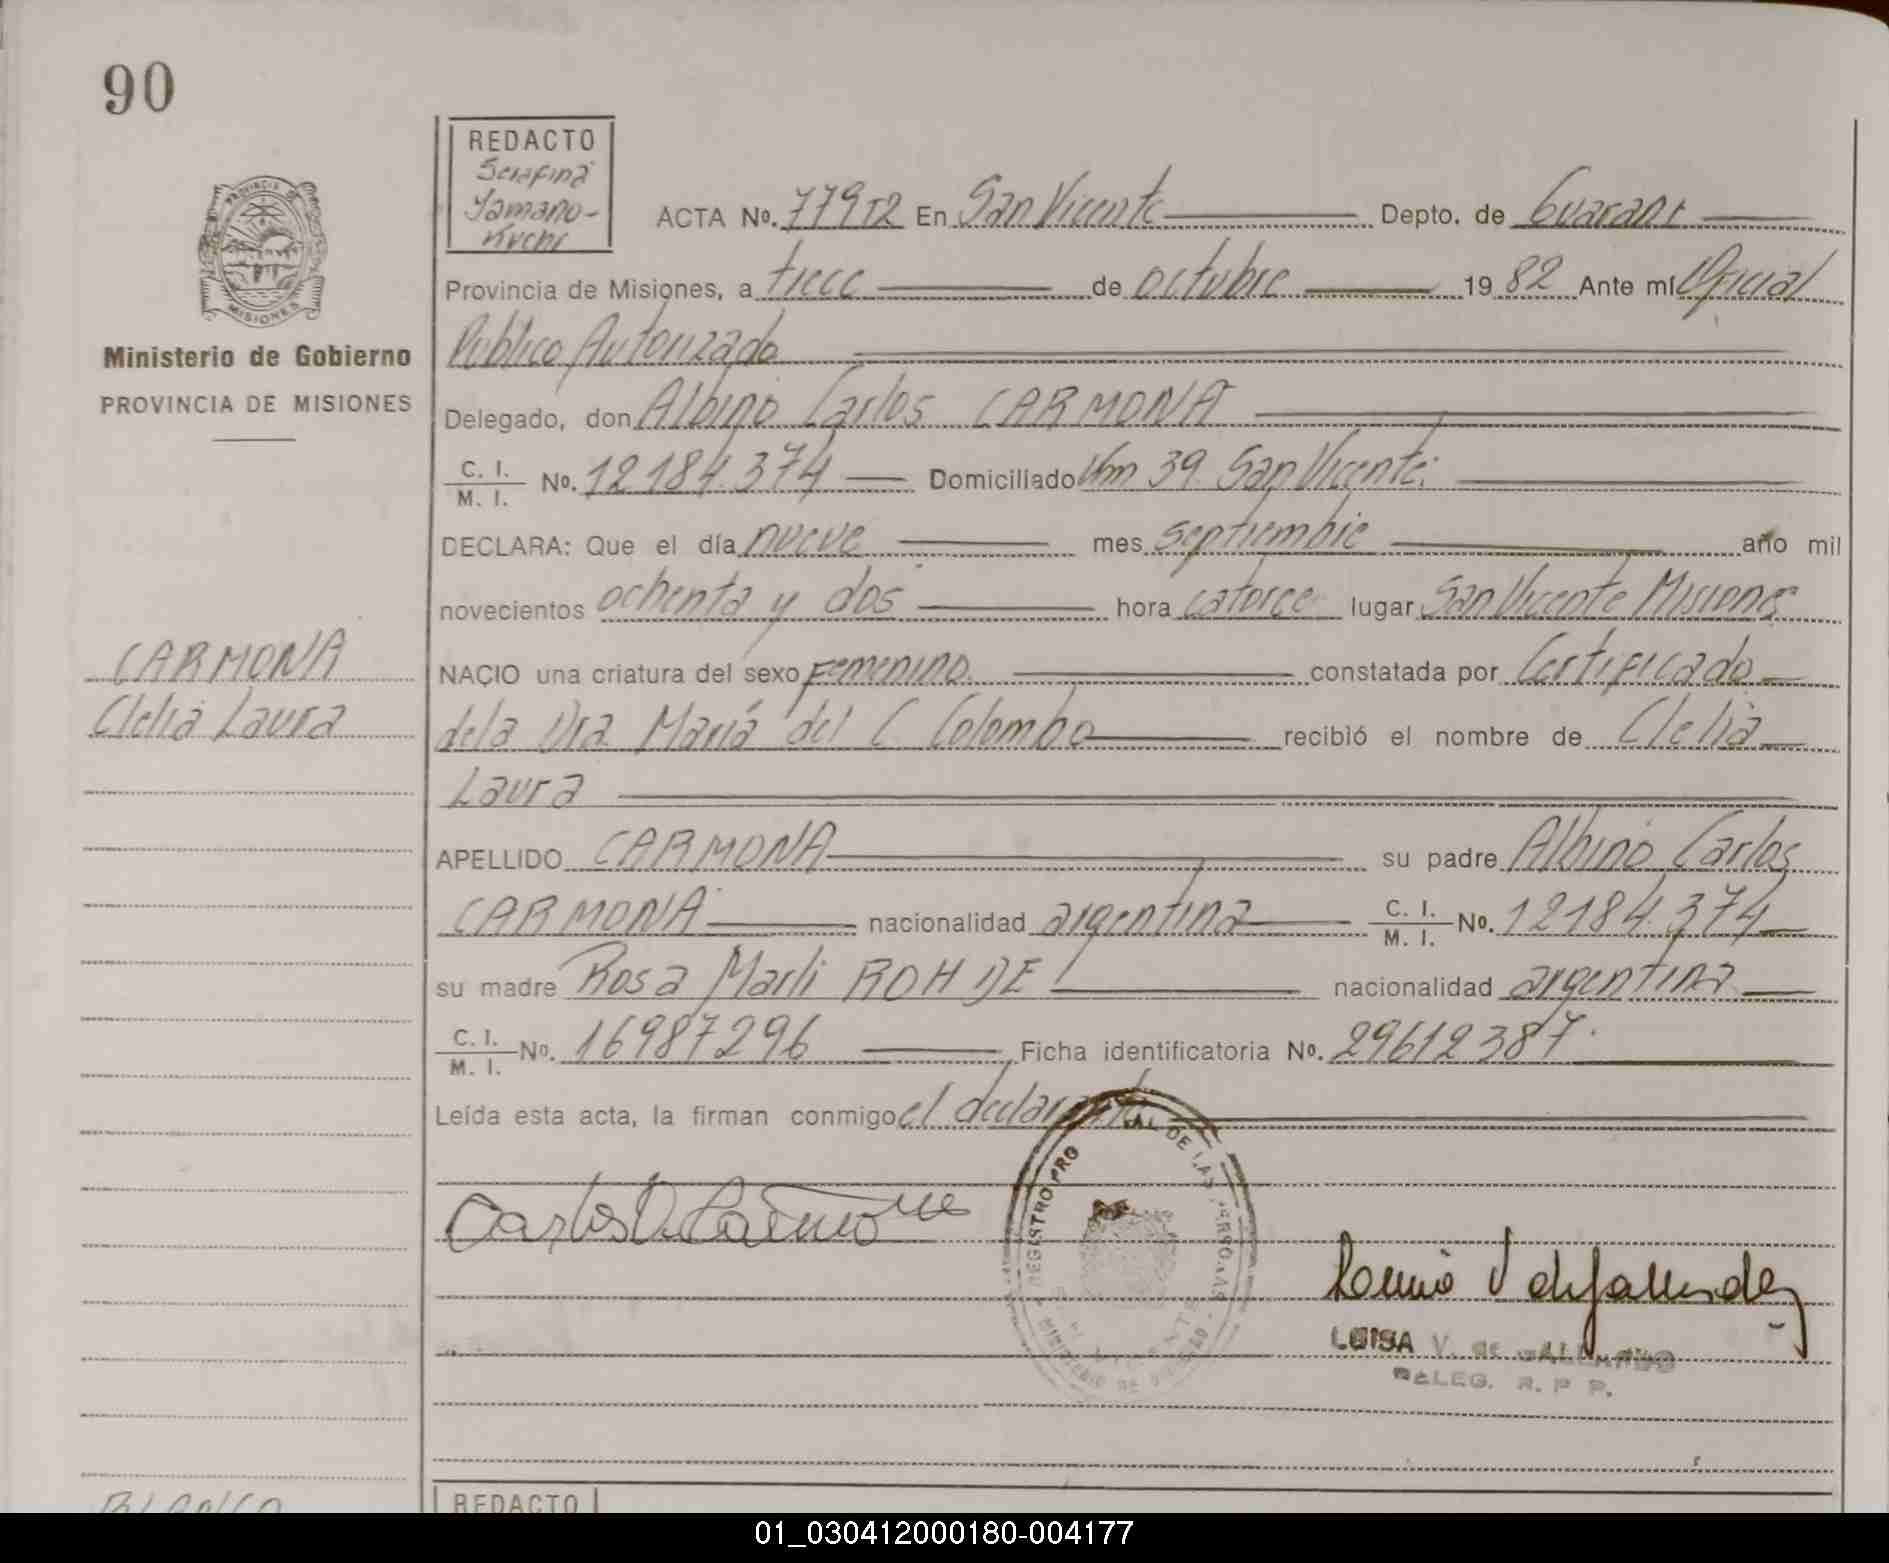 90
REDACTO
Serafina
Yamano-
kuchi
PROVINCIA DE
MISIONES
Ministerio de Gobierno
PROVINCIA DE MISIONES
ACTA No. 779T2 En San Vicente Depto. de Guarani
Provincia de Misiones, a trece de octubre 19 82 Ante mí Oficial
Público Autorizado
Delegado, don Albino Carlos CARMONA
C. I. / M. I. No. 12184.374 Domiciliado Km 39 San Vicente
DECLARA: Que el día nueve mes septiembre año mil
novecientos ochenta y dos hora catorce lugar San Vicente Misiones
CARMONA
Clelia Laura
NACIO una criatura del sexo Femenino constatada por Certificado
de la Dra María del C Colombo recibió el nombre de Clelia
Laura
APELLIDO CARMONA su padre Albino Carlos
CARMONA nacionalidad argentina C. I. / M. I. No. 12184.374
su madre Rosa Marli ROHDE nacionalidad argentina
C. I. / M. I. No. 16987296 Ficha identificatoria No. 29612387
Leída esta acta, la firman conmigo el declarante
REGISTRO PRO AL DE LAS PERSONAS
MINISTERIO DE
LUISA V. DE GALLARDO
DELEG. R. P. P.
BLANCO
REDACTO
01_030412000180-004177